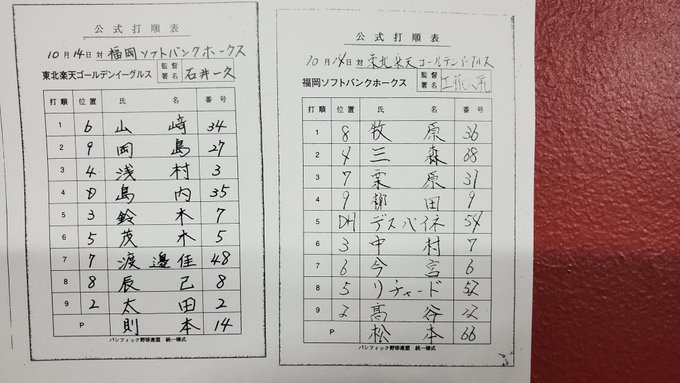 公式打順表
10月14日 対 福岡ソフトバンクホークス
東北楽天ゴールデンイーグルス 監督署名 石井一久
打順 位置 氏 名 番号
1 6 山﨑 34
2 9 岡島 27
3 4 浅村 3
4 D 島内 35
5 3 鈴木 7
6 5 茂木 5
7 7 渡邊佳 48
8 8 辰己 8
9 2 太田 2
P 則本 14
パシフィック野球連盟 統一様式
公式打順表
10月14日 対 東北楽天ゴールデンイーグルス
福岡ソフトバンクホークス 監督署名 工藤公康
打順 位置 氏 名 番号
1 8 牧原 36
2 4 三森 68
3 7 栗原 31
4 9 柳田 9
5 DH デスパイネ 54
6 3 中村 7
7 6 今宮 6
8 5 リチャード 52
9 2 髙谷 22
P 松本 66
パシフィック野球連盟 統一様式